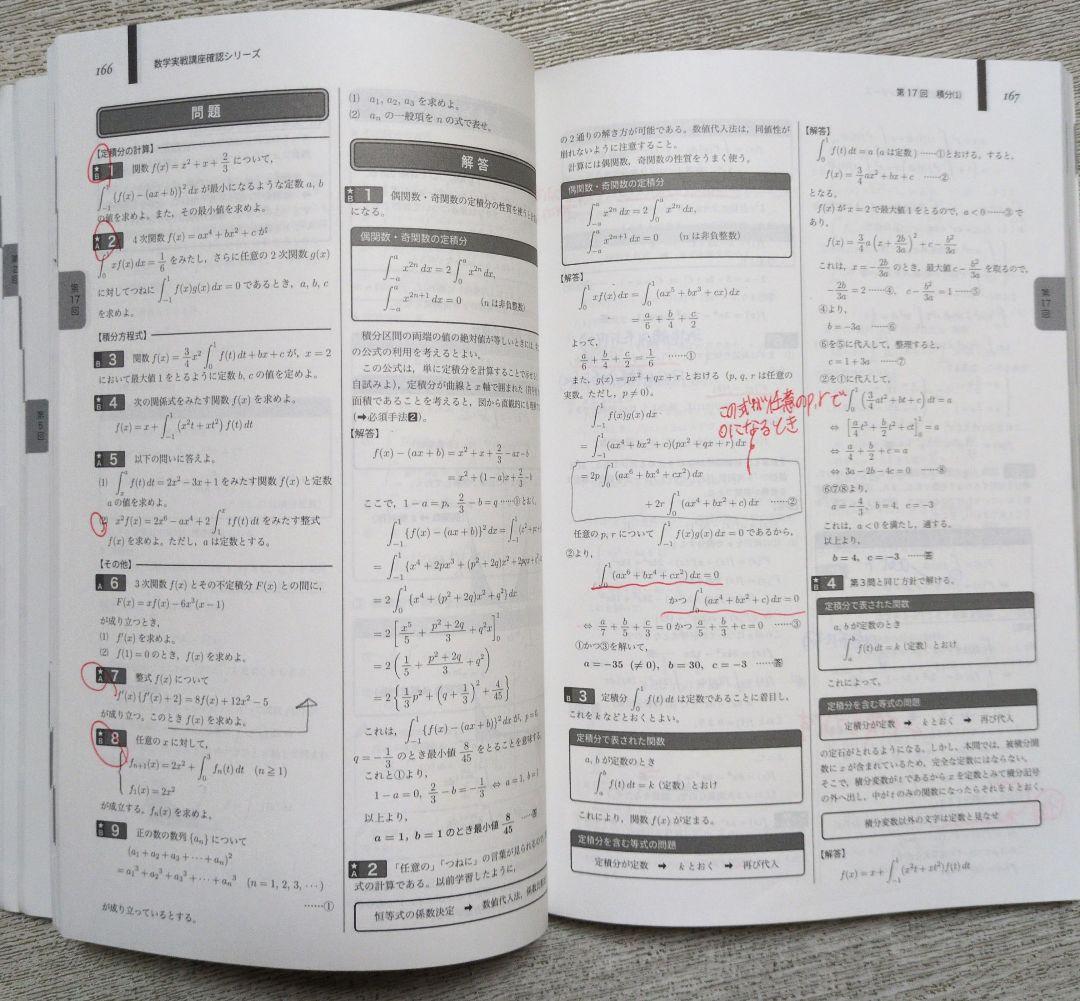 166
数学実戦講座確認シリーズ
問題
【定積分の計算】
★B 1 関数 f(x)=x²+x+2/3 について,
∫₋₁¹{f(x)-(ax+b)}²dx が最小になるような定数 a, b
の値を求めよ。また, その最小値を求めよ。
★A 2 4次関数 f(x)=ax⁴+bx²+c が
∫₀¹xf(x)dx=1/6 をみたし, さらに任意の2次関数 g(x)
に対してつねに ∫₋₁¹f(x)g(x)dx=0 であるとき, a, b, c
を求めよ。
【積分方程式】
B 3 関数 f(x)=3/4x²∫₀¹f(t)dt+bx+c が, x=2
において最大値1をとるように定数 b, c の値を定めよ。
★B 4 次の関係式をみたす関数 f(x) を求めよ。
f(x)=x+∫₋₁¹(x²t+xt²)f(t)dt
★A 5 以下の問いに答えよ。
(1) ∫ₐˣf(t)dt=2x²-3x+1 をみたす関数 f(x) と定数
a の値を求めよ。
(2) x²f(x)=2x⁶-ax⁴+2∫₁ˣtf(t)dt をみたす整式
f(x) を求めよ。ただし, a は定数とする。
【その他】
A 6 3次関数 f(x) とその不定積分 F(x) との間に,
F(x)=xf(x)-6x³(x-1)
が成り立つとき,
(1) f′(x) を求めよ。
(2) f(1)=0 のとき, f(x) を求めよ。
★A 7 整式 f(x) について
f′(x){f′(x)+2}=8f(x)+12x²-5
が成り立つ。このとき f(x) を求めよ。
★B 8 任意の x に対して,
fₙ₊₁(x)=2x²+∫₀³fₙ(t)dt (n≧1)
f₁(x)=2x²
が成立する。fₙ(x) を求めよ。
★B 9 正の数の数列 {aₙ} について
(a₁+a₂+a₃+⋯+aₙ)²
=a₁³+a₂³+a₃³+⋯+aₙ³ (n=1, 2, 3, ⋯)
……①
が成り立っているとする。
(1) a₁, a₂, a₃ を求めよ。
(2) aₙ の一般項を n の式で表せ。
解答
★B 1 偶関数・奇関数の定積分の性質を使う
になる。
偶関数・奇関数の定積分
∫₋ₐᵃx²ⁿdx=2∫₀ᵃx²ⁿdx,
∫₋ₐᵃx²ⁿ⁺¹dx=0 (n は非負整数)
積分区間の両端の値の絶対値が等しいときは,
の公式の利用を考えるとよい。
この公式は, 単に定積分を計算することで示せる
自試みよ), 定積分が曲線と x 軸で囲まれた
面積であることを考えると, 図から直観的にも
(➡必須手法2)。
【解答】
f(x)-(ax+b)=x²+x+2/3-ax-b
=x²+(1-a)x+2/3-b
ここで, 1-a=p, 2/3-b=q ……①とおく。
∫₋₁¹{f(x)-(ax+b)}²dx=∫₋₁¹(x²+px+
=∫₋₁¹{x⁴+2px³+(p²+2q)x²+2pqx+
=2∫₀¹{x⁴+(p²+2q)x²+q²}dx
=2[x⁵/5+(p²+2q)/3x³+q²x]₀¹
=2(1/5+(p²+2q)/3+q²)
=2{1/3p²+(q+1/3)²+4/45}
これは, ∫₋₁¹{f(x)-(ax+b)}²dx が, p=0,
q=-1/3 のとき最小値 8/45 をとることを意味する。
これと①より,
1-a=0, 2/3-b=-1/3 ⇔ a=1, b=1
以上より,
a=1, b=1 のとき最小値 8/45 ……答
★A 2 「任意の」「つねに」の言葉が見られるので,
式の計算である。以前学習したように,
恒等式の係数決定 ➡ 数値代入法, 係数比較
第17回
第5回
第17回 積分(1)
167
の2通りの解き方が可能である。数値代入法は, 同値性が
崩れないように注意すること。
計算には偶関数, 奇関数の性質をうまく使う。
偶関数・奇関数の定積分
∫₋ₐᵃx²ⁿdx=2∫₀ᵃx²ⁿdx,
∫₋ₐᵃx²ⁿ⁺¹dx=0 (n は非負整数)
【解答】
∫₀¹xf(x)dx=∫₀¹(ax⁵+bx³+cx)dx
=a/6+b/4+c/2
よって,
a/6+b/4+c/2=1/6 ……①
また, g(x)=px²+qx+r とおける (p, q, r は任意の
実数。ただし, p≠0)。
この式が任意のp,rで
0になるとき
∫₋₁¹f(x)g(x)dx
=∫₋₁¹(ax⁴+bx²+c)(px²+qx+r)dx
=2p∫₀¹(ax⁶+bx⁴+cx²)dx
+2r∫₀¹(ax⁴+bx²+c)dx ……②
任意の p, r について ∫₋₁¹f(x)g(x)dx=0 であるから,
②より,
∫₀¹(ax⁶+bx⁴+cx²)dx=0
かつ ∫₀¹(ax⁴+bx²+c)dx=0
⇔ a/7+b/5+c/3=0 かつ a/5+b/3+c=0 ……③
①かつ③を解いて,
a=-35 (≠0), b=30, c=-3 ……答
B 3 定積分 ∫₀¹f(t)dt は定数であることに着目し,
これを k などとおくとよい。
定積分で表された関数
a, b が定数のとき
∫ₐᵇf(t)dt=k (定数) とおけ
これにより, 関数 f(x) が定まる。
定積分を含む等式の問題
定積分が定数 ➡ k とおく ➡ 再び代入
【解答】
∫₀¹f(t)dt=a (a は定数) ……①とおける。すると,
f(x)=3/4ax²+bx+c ……②
となる。
f(x) が x=2 で最大値1をとるので, a<0 ……③で
あり,
f(x)=3/4a(x+2b/3a)²+c-b²/3a
これは, x=-2b/3a のとき, 最大値 c-b²/3a を取るので,
-2b/3a=2 ……④, c-b²/3a=1 ……⑤
④より,
b=-3a ……⑥
⑥を⑤に代入して, 整理すると,
c=1+3a ……⑦
②を①に代入して,
∫₀¹(3/4at²+bt+c)dt=a
⇔ [a/4t³+b/2t²+ct]₀¹=a
⇔ a/4+b/2+c=a
⇔ 3a-2b-4c=0 ……⑧
⑥⑦⑧より,
a=-4/3, b=4, c=-3
これは, a<0 を満たし, 適する。
以上より,
b=4, c=-3 ……答
★B 4 第3問と同じ方針で解ける。
定積分で表された関数
a, b が定数のとき
∫ₐᵇf(t)dt=k (定数) とおけ
これによって,
定積分を含む等式の問題
定積分が定数 ➡ k とおく ➡ 再び代入
の定石がとれるようになる。しかし, 本問では, 被積分関
数に x が含まれているため, 完全な定数にはならない。
そこで, 積分変数が t であるから x を定数とみて積分記号
の外へ出し, 中が t のみの関数になったらそれを k とおく。
積分変数以外の文字は定数と見なせ
【解答】
f(x)=x+∫₋₁¹(x²t+xt²)f(t)dt
第17回